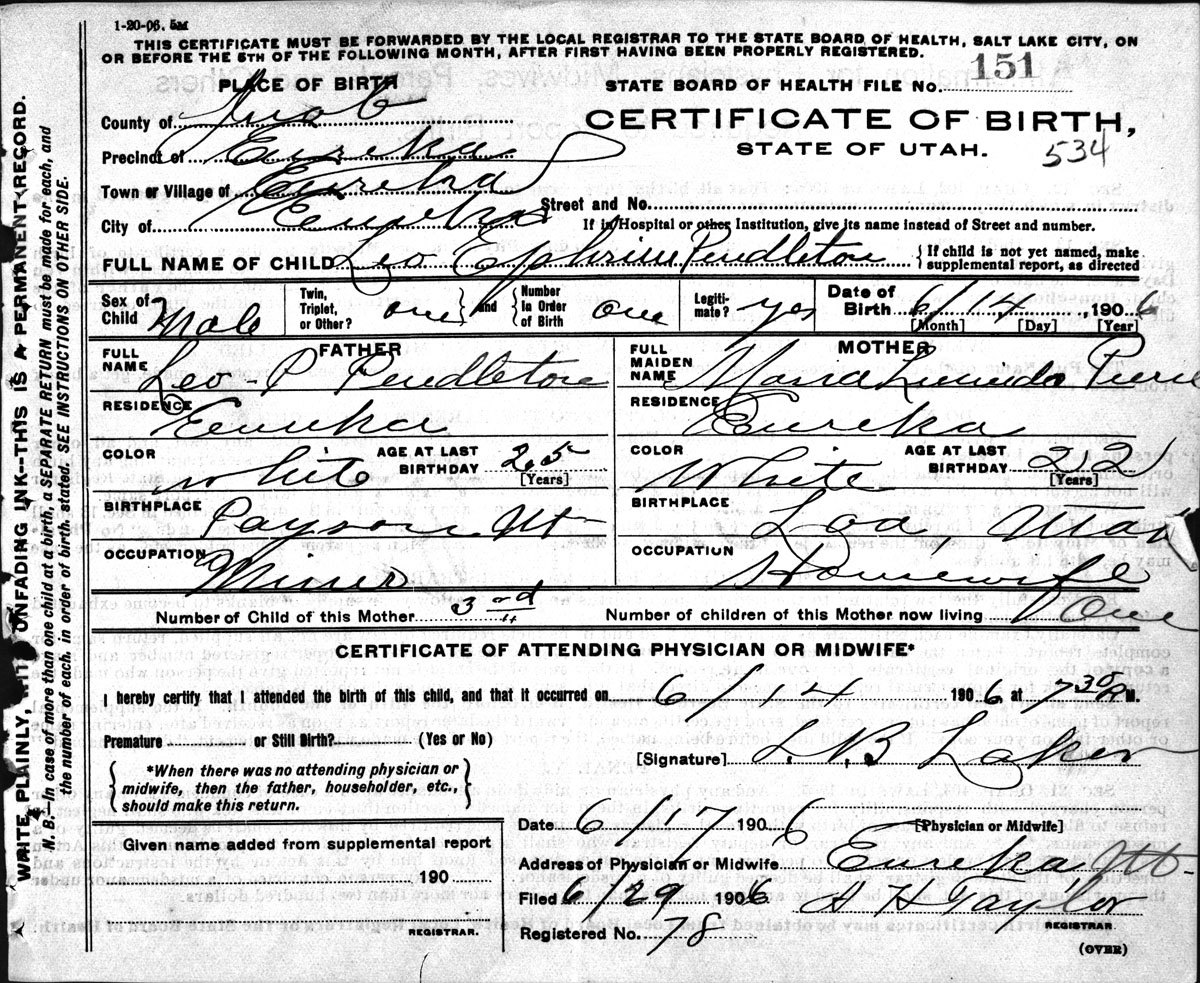 1-20-06. 5M
THIS CERTIFICATE MUST BE FORWARDED BY THE LOCAL REGISTRAR TO THE STATE BOARD OF HEALTH, SALT LAKE CITY, ON
OR BEFORE THE 5TH OF THE FOLLOWING MONTH, AFTER FIRST HAVING BEEN PROPERLY REGISTERED.
PLACE OF BIRTH
STATE BOARD OF HEALTH FILE No. 151
County of Juab
CERTIFICATE OF BIRTH,
Precinct of Eureka
STATE OF UTAH. 534
Town or Village of Eureka
Street and No.
City of Eureka
If in Hospital or other Institution, give its name instead of Street and number.
FULL NAME OF CHILD Leo Ephrim Pendleton
If child is not yet named, make
supplemental report, as directed
Sex of Child Male
Twin, Triplet, or Other? one and Number in Order of Birth one
Legiti-mate? yes
Date of Birth 6/14, 1906
[Month] [Day] [Year]
FATHER
FULL NAME Leo P Pendleton
RESIDENCE Eureka
COLOR white AGE AT LAST BIRTHDAY 25
[Years]
BIRTHPLACE Payson Ut
OCCUPATION Miner
MOTHER
FULL MAIDEN NAME Maria
RESIDENCE Eureka
COLOR White AGE AT LAST BIRTHDAY 22
[Years]
BIRTHPLACE Loa, Utah
OCCUPATION Housewife
Number of Child of this Mother 3rd
Number of children of this Mother now living One
CERTIFICATE OF ATTENDING PHYSICIAN OR MIDWIFE*
I hereby certify that I attended the birth of this child, and that it occurred on 6/14 1906 at 730 P. M.
Premature or Still Birth? (Yes or No)
[Signature]
*When there was no attending physician or
midwife, then the father, householder, etc.,
should make this return.
[Physician or Midwife]
Date 6/17 1906
Given name added from supplemental report
190
REGISTRAR.
Address of Physician or Midwife Eureka, Ut.
Filed 6/29 1906 H H Taylor
REGISTRAR.
Registered No. 78
(OVER)
WRITE PLAINLY, WITH UNFADING INK—THIS IS A PERMANENT RECORD.
N. B.—In case of more than one child at a birth, a SEPARATE RETURN must be made for each, and
the number of each, in order of birth, stated. SEE INSTRUCTIONS ON OTHER SIDE.